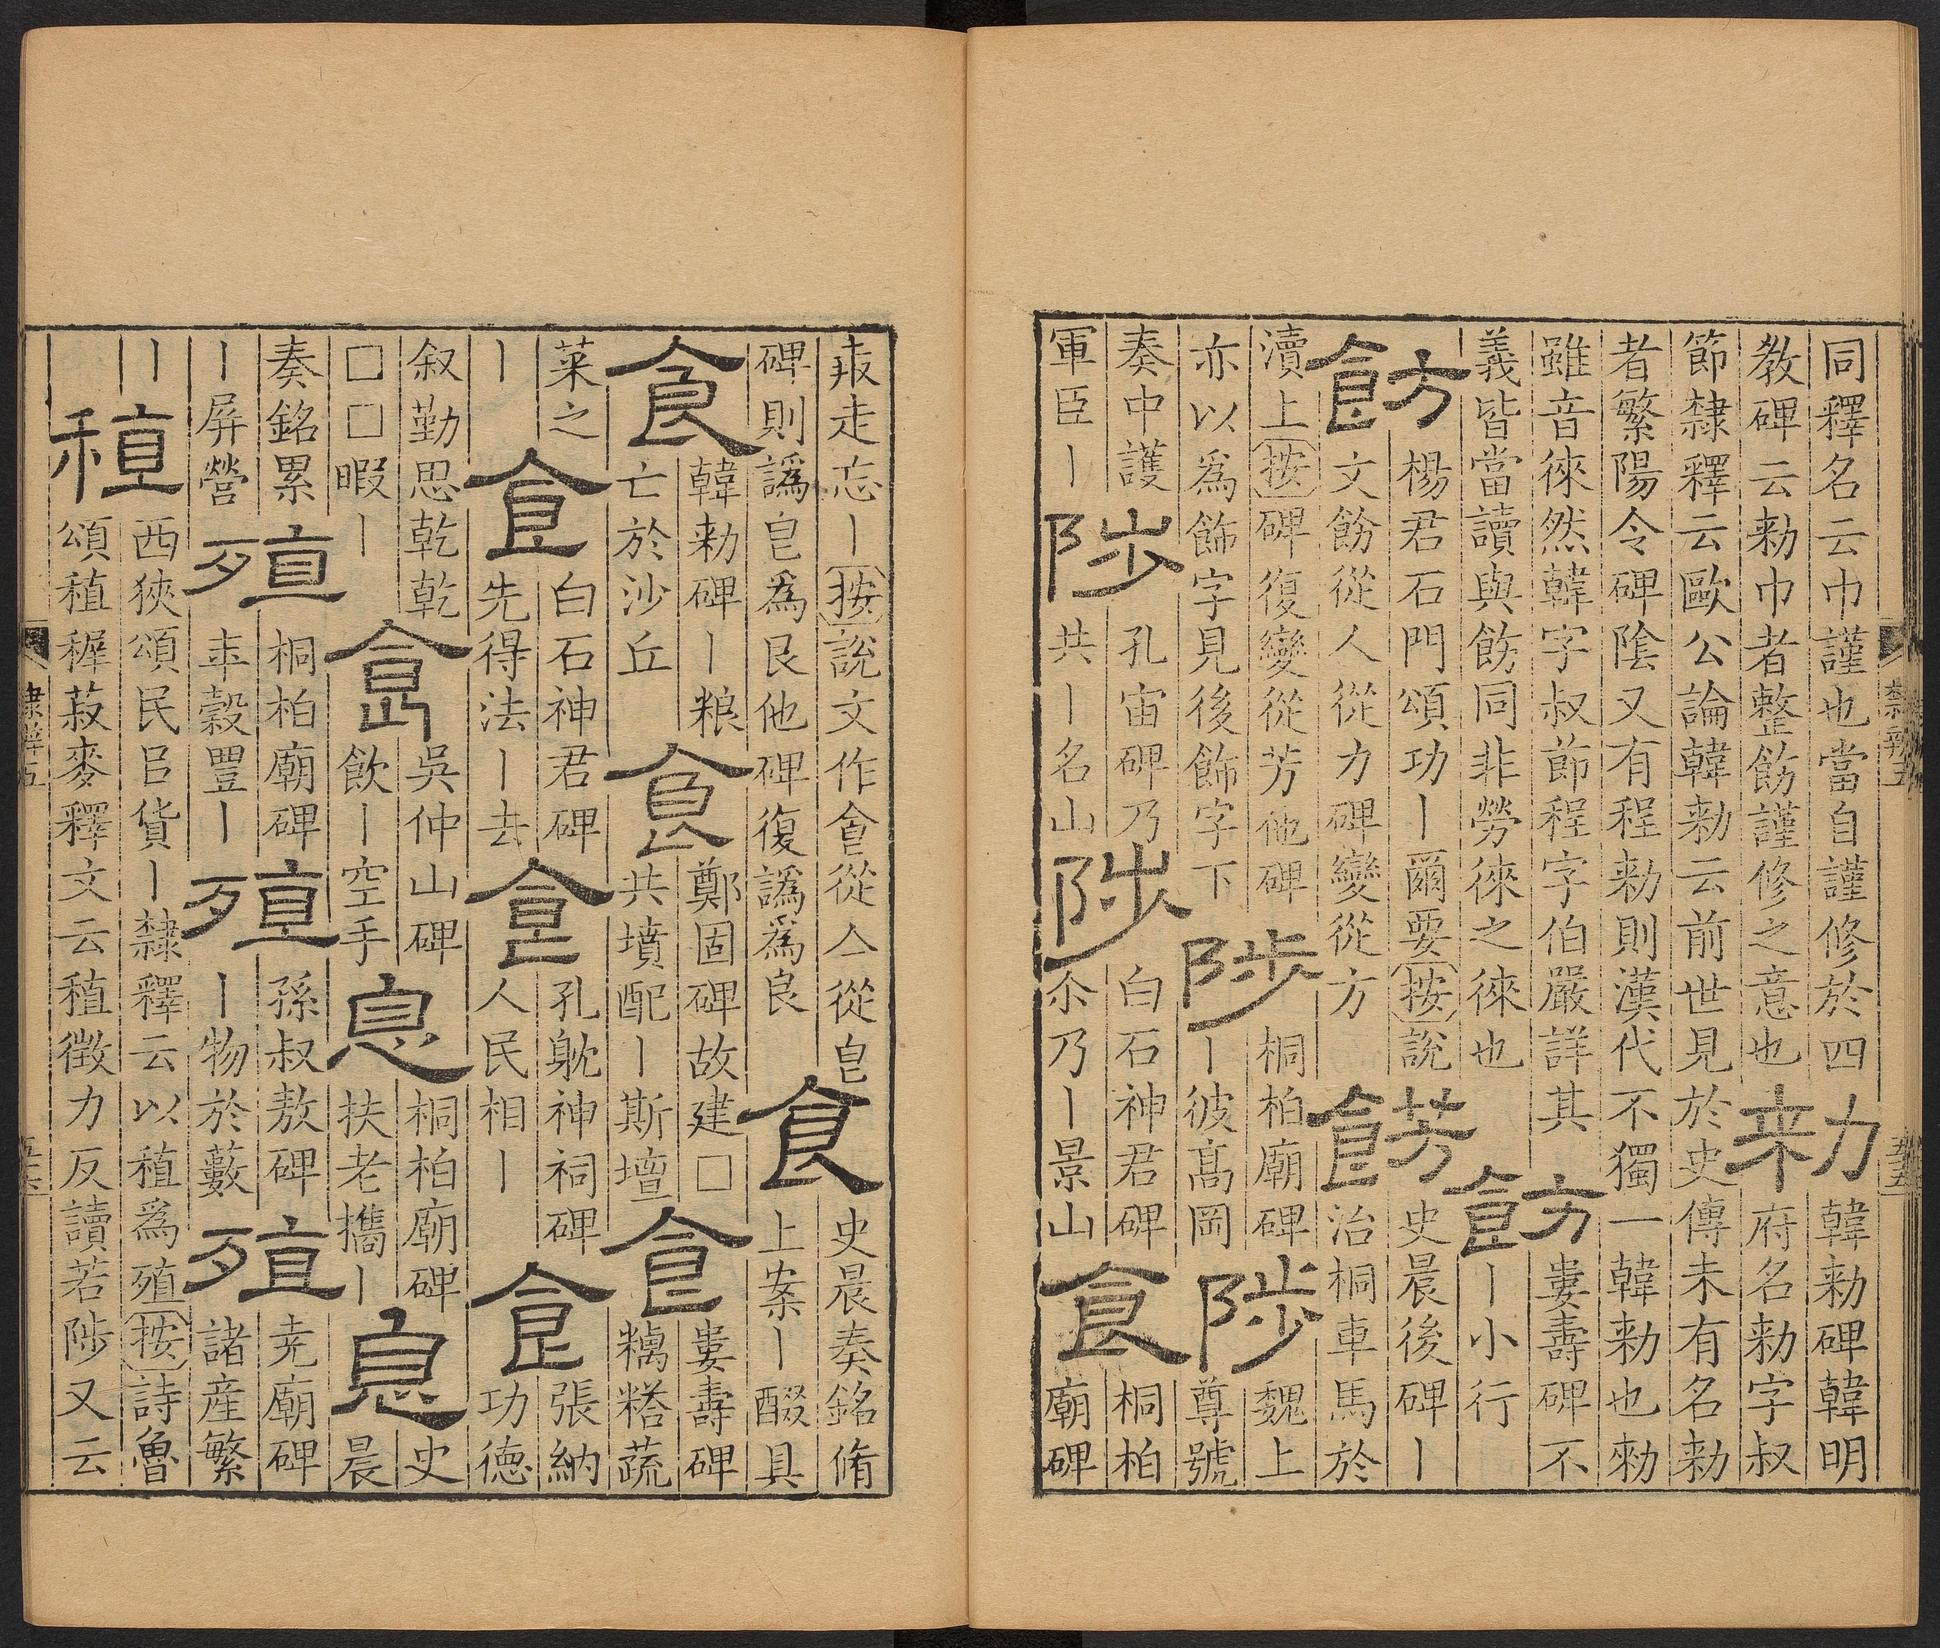 同釋名云巾謹也當自謹修於四勑韓勑碑韓明
教碑云勑巾者整飭謹修之意也府名勑字叔
節隸釋云歐公論韓勑云前世見於史傳未有名勑
者繁陽令碑陰又有程勑則漢代不獨一韓勑也勑
雖音徠然韓字叔節程字伯嚴詳其飭婁壽碑不
義皆當讀與飭同非勞徠之徠也丨小行
飭楊君石門頌功丨爾要按說飭史晨後碑丨
文飭從人從力碑變從方治桐車馬於
瀆上按碑復變從芳他碑陟桐柏廟碑陟魏上
亦以爲飾字見後飾字下丨彼髙岡尊號
奏中護陟孔宙碑乃陟白石神君碑食桐柏
軍臣丨共丨名山尒乃丨景山廟碑
叛走忘丨按說文作食從亼從皀食史晨奏銘脩
碑則譌皀爲艮他碑復譌爲良上案丨醊具
食韓勑碑丨粮食鄭固碑故建□食婁壽碑
亡於沙丘共墳配丨斯壇糲荅蔬
菜之食白石神君碑食孔躭神祠碑食張納
丨先得法丨去人民相丨功德
叙勤思乾乾食吳仲山碑息桐柏廟碑息史
□□暇丨飲丨空手扶老攜丨晨
奏銘累殖桐柏廟碑殖孫叔敖碑殖尭廟碑
丨屏營年穀豐丨丨物於藪諸産繁
丨稙西狹頌民㠯貨丨隸釋云以稙爲殖按詩魯
頌稙稺菽麥釋文云稙徵力反讀若陟又云
隸辨五